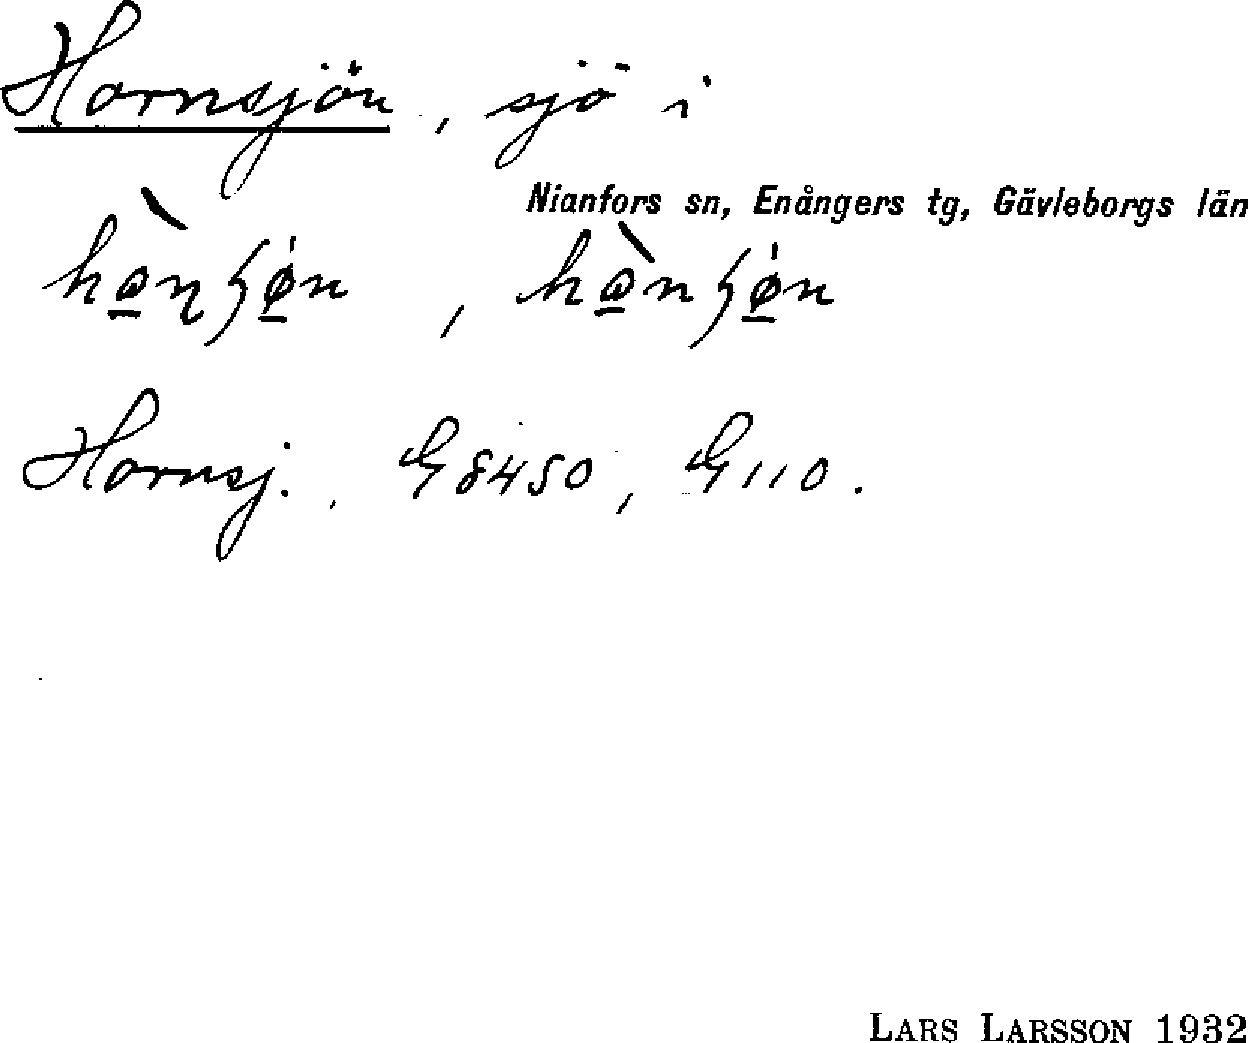 Hornsjön, sjö i
Nianfors sn, Enångers tg, Gävleborgs län
Hornsj., G8450, G110.
LARS LARSSON 1932